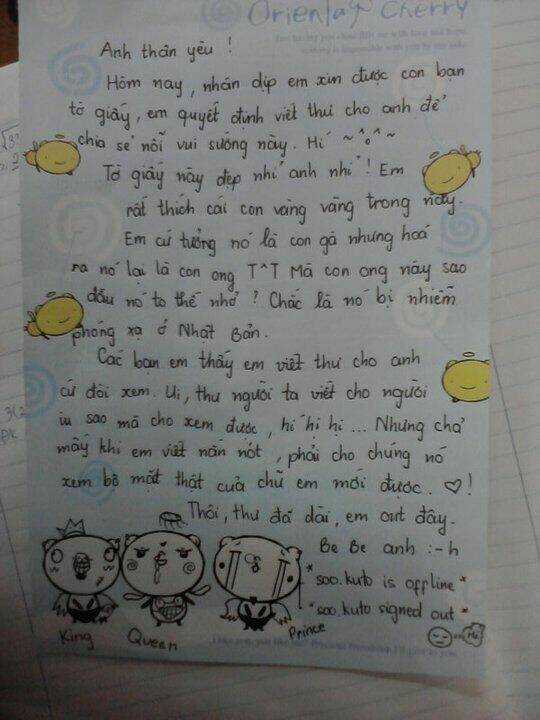 Orienjay Cherry
Anh thân yêu !
Hôm nay, nhân dịp em xin được con bạn
tờ giấy, em quyết định viết thư cho anh để
chia sẻ nỗi vui sướng này. Hí ~^o^~
Tờ giấy này đẹp nhỉ anh nhỉ ! Em
rất thích cái con vàng vàng trong này.
Em cứ tưởng nó là con gà nhưng hoá
ra nó lại là con ong T^T Mà con ong này sao
đầu nó to thế nhở ? Chắc là nó bị nhiễm
phóng xạ ở Nhật Bản.
Các bạn em thấy em viết thư cho anh
cứ đòi xem. Ui, thư người ta viết cho người
iu sao mà cho xem được, hí hí hị ... Nhưng chả
mấy khi em viết nắn nót, phải cho chúng nó
xem bộ mặt thật của chữ em mới được. ♡!
Thôi, thư đã dài, em out đây.
Be Be anh :-h
*soo.kuto is offline*
*soo.kuto signed out*
King
Queen
Prince